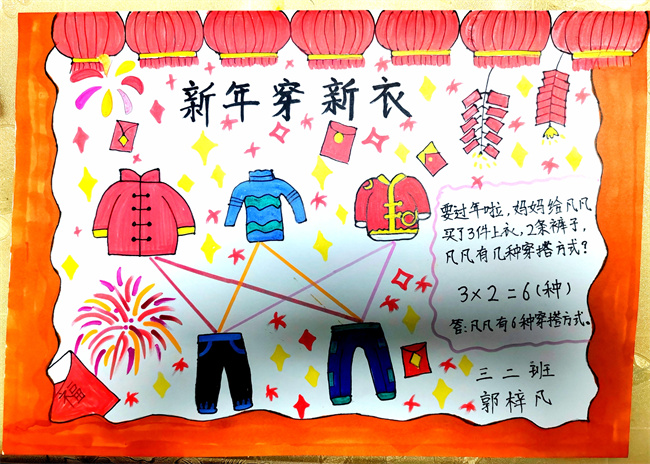 新年穿新衣
要过年啦,妈妈给凡凡
买了3件上衣,2条裤子,
凡凡有几种穿搭方式?
3×2=6(种)
答:凡凡有6种穿搭方式。
三二班
郭梓凡
福